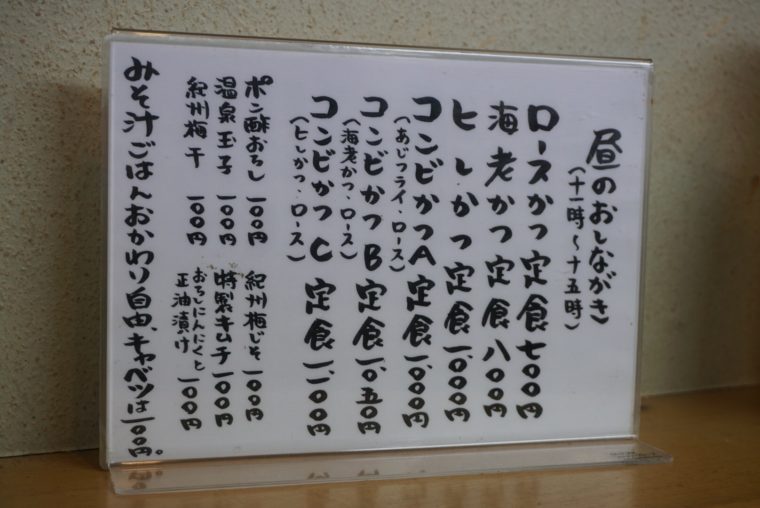 昼のおしながき
(十一時～十五時)
ロースかつ定食 七〇〇円
海老かつ定食 八〇〇円
ヒレかつ定食 一、〇〇〇円
コンビかつA定食 一、〇〇〇円
(あじフライ・ロース)
コンビかつB定食 一、〇五〇円
(海老かつ・ロース)
コンビかつC定食 一、一〇〇円
(ヒレかつ・ロース)
ポン酢おろし 一〇〇円
温泉玉子 一〇〇円
紀州梅干 一〇〇円
紀州梅じそ 一〇〇円
特製キムチ 一〇〇円
おろしにんにくと
正油漬け 一〇〇円
みそ汁ごはんおかわり自由、キャベツは一〇〇円。